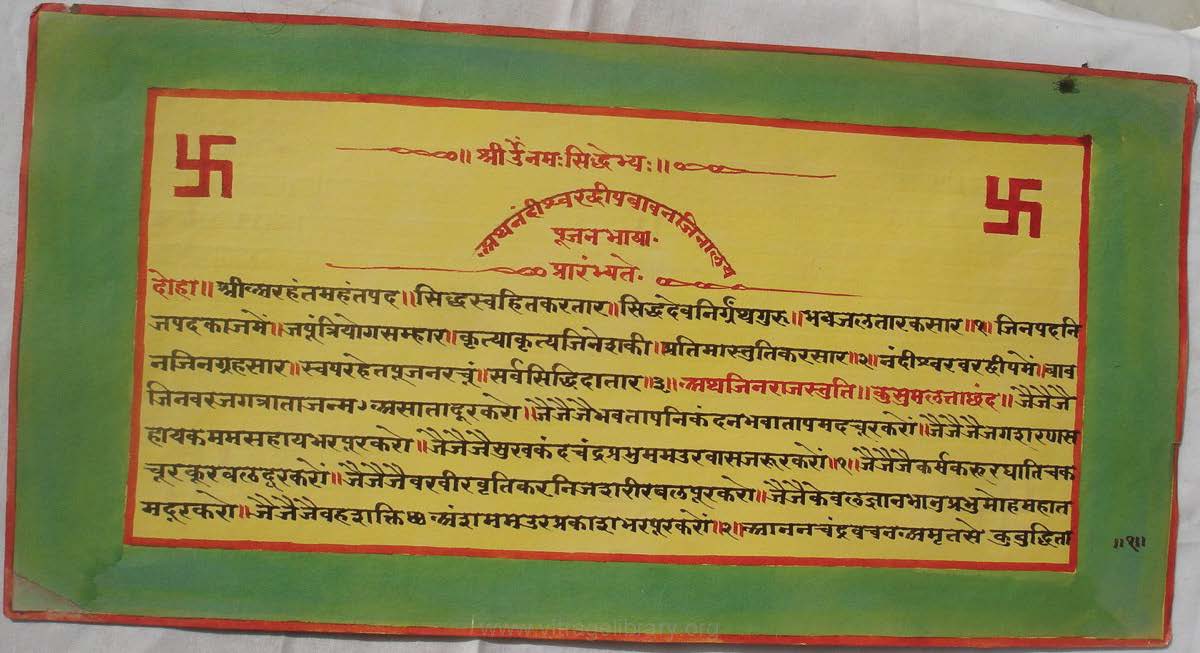 ॥ श्रीउँनमःसिद्धेभ्यः॥
अथनंदीश्वरद्वीपबावनजिनालय
पूजनभाषा.
प्रारंभ्यते.
दोहा॥ श्रीअरहंतमहंतपद॥सिद्धस्वहितकरतार॥सिद्धदेवनिर्ग्रंथगुरु॥भवजलतारकसार॥१॥ जिनपदनि
जपदकाजमें॥जपूंत्रियोगसम्हार॥कृत्याकृत्यजिनेशकी॥प्रतिमास्तुतिकरसार॥२॥नंदीश्वरवरद्वीपमें॥बाव
नजिनग्रहसार॥स्वपरहेतपूजनरचूं॥सर्वसिद्धिदातार॥३॥अथजिनराजस्तुति॥ कुसुमलताछंद॥ जैजैजै
जिनवरजगत्राताजन्मअसातादूरकरो॥जैजैजैभवतापनिकंदनभवातापमदचूरकरों॥जैजैजैजगशरणस
हायकममसहायभरपूरकरो॥जैजैजैमुखकंदचंद्रप्रभुममउरवासजरूरकरों॥१॥जैजैजैकर्मकरूरघातिचक
चूरकूरबलदूरकरों॥जैजैजैवरवीरवृतिकरनिजशरीरबलपूरकरो॥जैजैकेवलज्ञानभानुप्रभुमोहमहात
मदूरकरो॥जैजैजैवहशक्ति अंशममउरप्रकाशभरपूरकरों॥२॥आननचंद्रवचनअमृतसे कुबुद्धिता
॥१॥
www.vitragelibrary.org